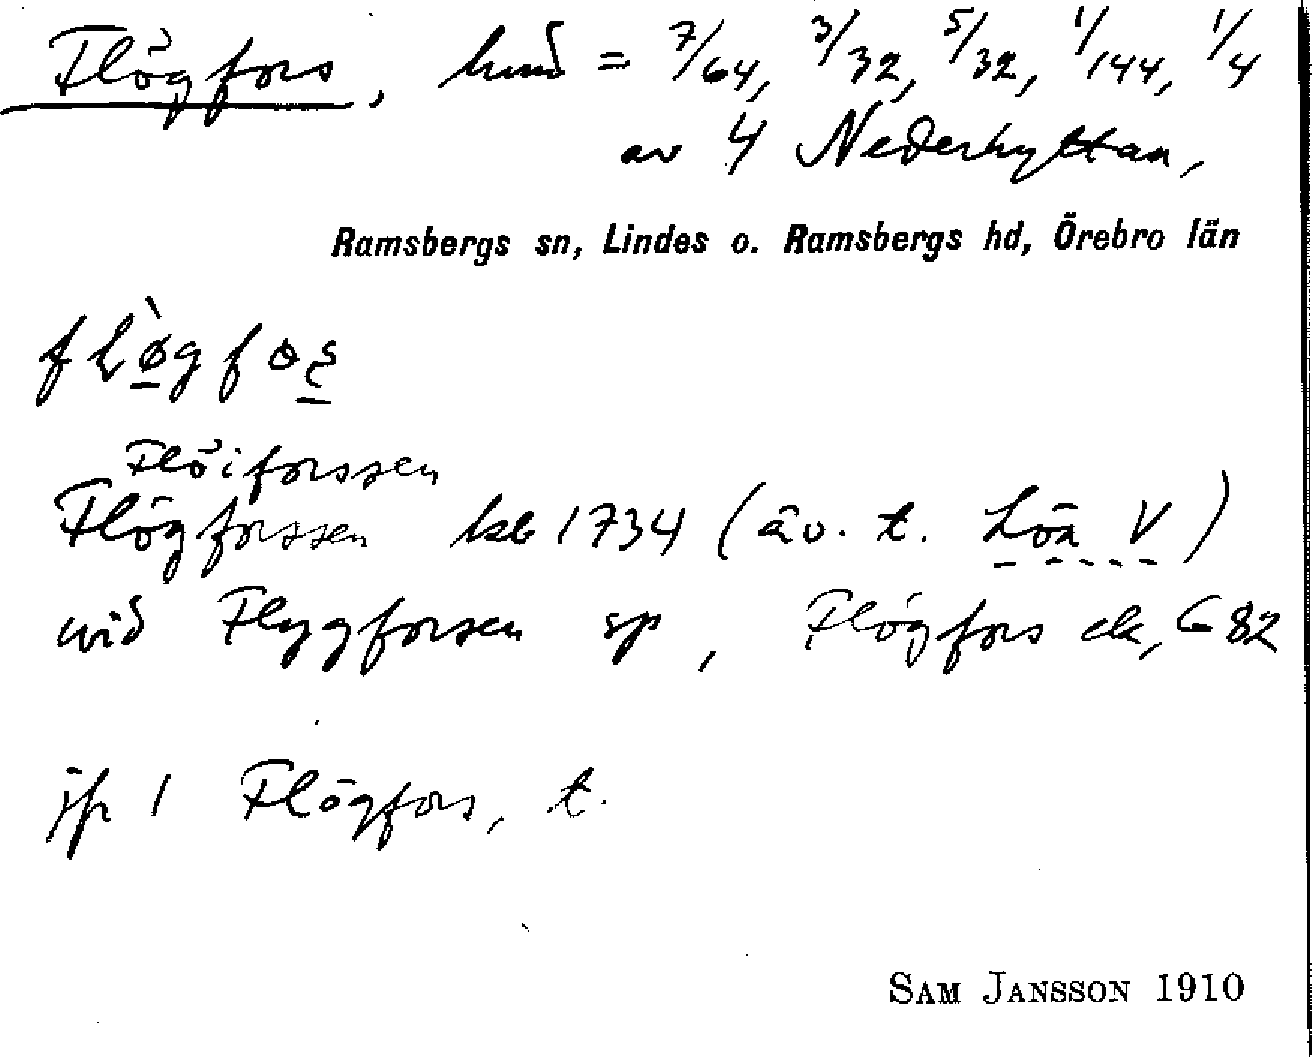 Flögfors, hmd = 7/64, 3/32, 5/32, 1/144, 1/4
av 4 Nederhyttan,
Ramsbergs sn, Lindes o. Ramsbergs hd, Örebro län
Flöiforssen
Flögforssen kb 1734 (äv. t. Löa V)
wid Flygforsen sp, Flögfors ek, G 82
jfr 1 Flögfors, t.
SAM JANSSON 1910